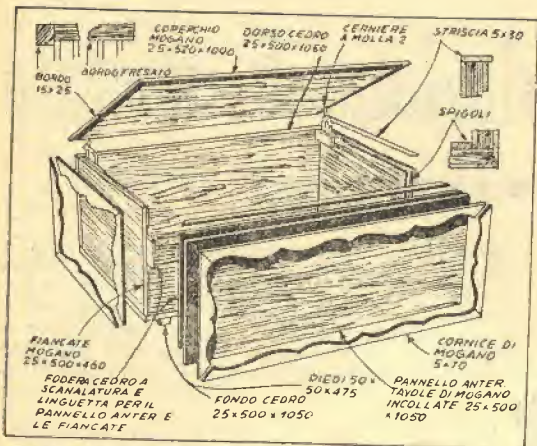 COPERCHIO
MOGANO
25×520×1000
DORSO CEDRO
25×500×1050
CERNIERE
A MOLLA 2
STRISCIA 5×30
BORDO
15×25
BORDO FRESATO
SPIGOLI
FIANCATE
MOGANO
25×500×460
FODERA CEDRO A
SCANALATURA E
LINGUETTA PER IL
PANNELLO ANTER E
LE FIANCATE
FONDO CEDRO
25×500×1050
PIEDI 50×
50×475
PANNELLO ANTER.
TAVOLE DI MOGANO
INCOLLATE 25×500
×1050
CORNICE DI
MOGANO
5×70